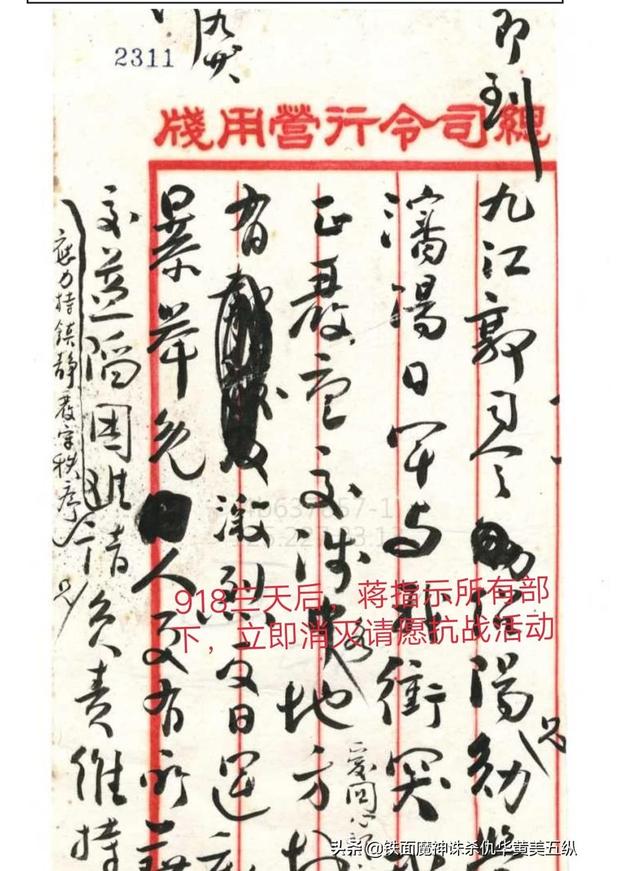 2311
即到
總司令行營用牋
九江郭司令
瀋陽日軍與我衝突
正嚴重交涉 地方
有 激烈反日運
暴舉免 人更有所
交益陷困難 請負責維持
應力持鎮靜嚴守秩序
918三天后，蒋指示所有部
下，立即消灭请愿抗战活动
头条 @铁面魔神诛杀仇华黄美五纵